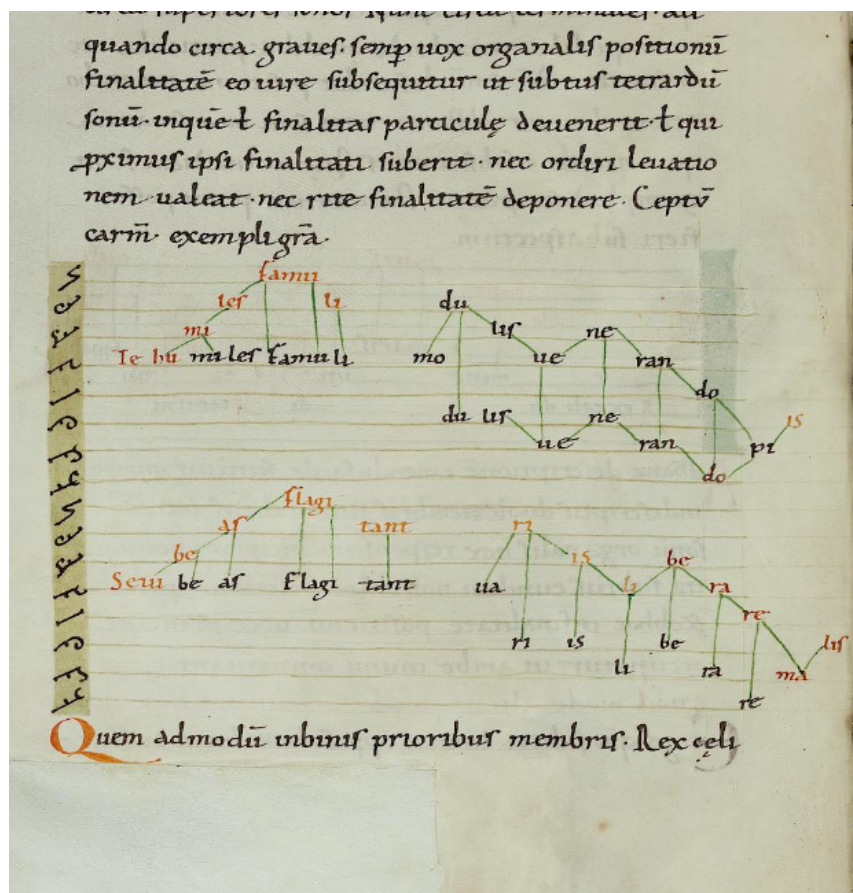 quando circa graues. semp uox organalis positionū
finalitatē eo iure subsequitur ut subtus tetrardū
sonū. in que ł finalitas particulę deuenerit. ł qui
pximus ipsi finalitati suberit. nec ordiri leuatio
nem ualeat. nec rite finalitatē deponere. Ceptū
carm̄. exempli grā.
famu
les li
mi
Te hu mi les famu li
du
lis ne
mo ue ran
do
du lis ne is
ue ran pi
do
flagi
as tant
be
Seru be as flagi tant
ri
is be
ua li ra
re
ri is be lis
li ra ma
re
Quem admodū in binis prioribus membris. Rex cęli